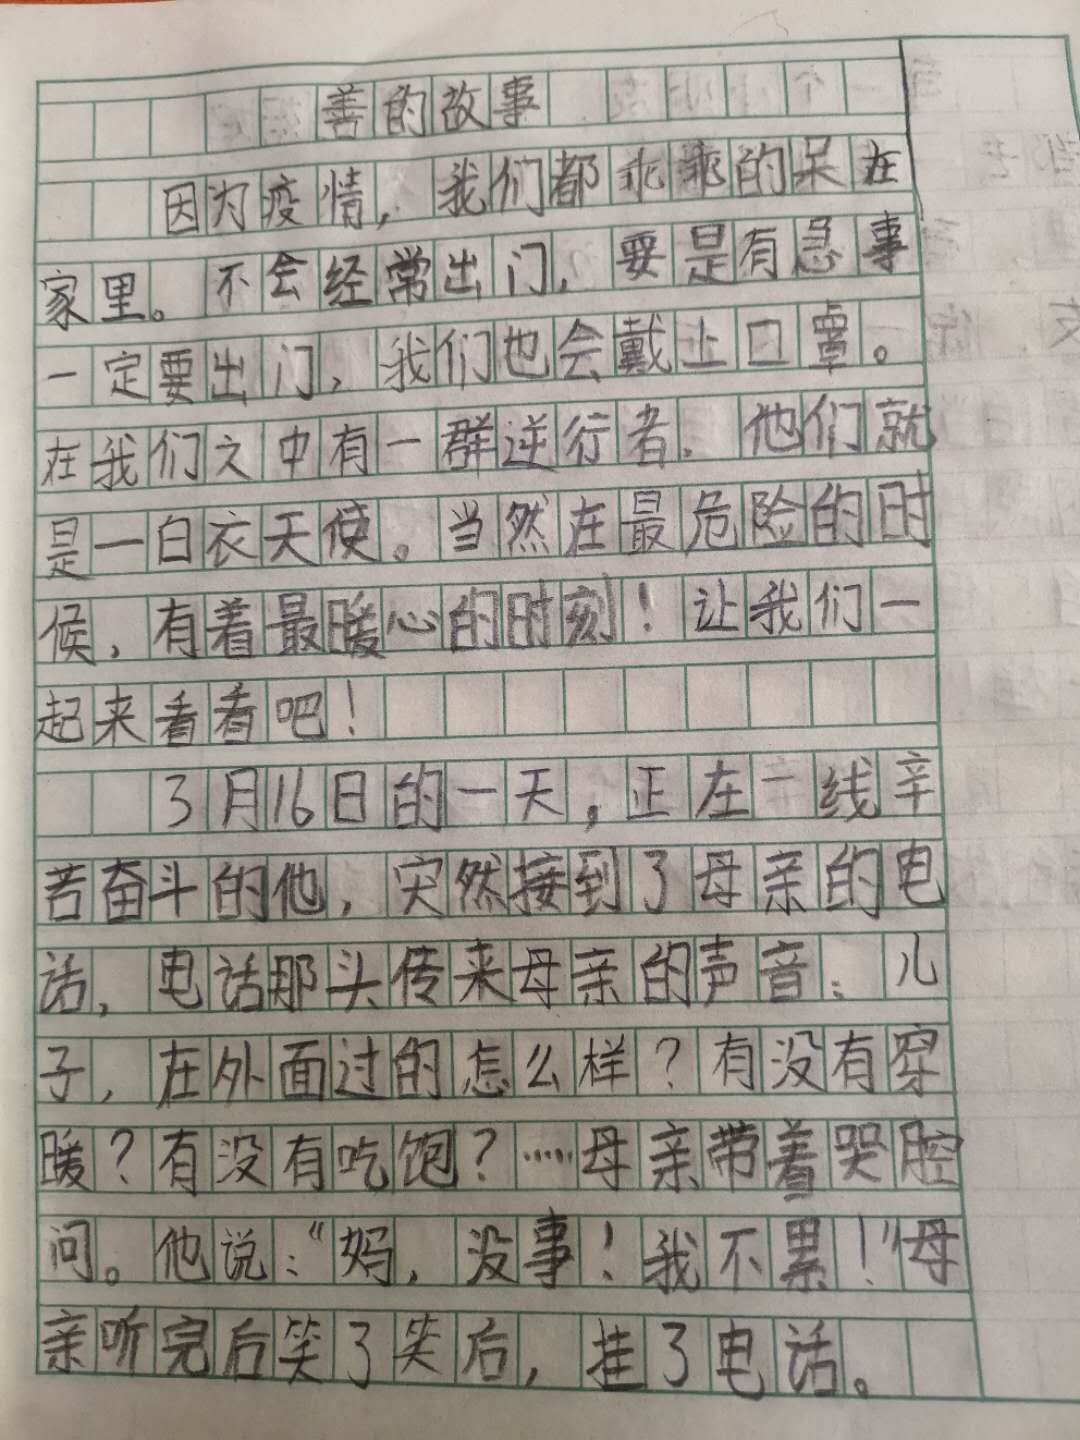 善的故事
因为疫情，我们都乖乖的呆在
家里。不会经常出门，要是有急事
一定要出门，我们也会戴上口罩。
在我们之中有一群逆行者．他们就
是一白衣天使。当然在最危险的时
候，有着最暖心的时刻！让我们一
起来看看吧！
3月16日的一天，正在一线辛
苦奋斗的他，突然接到了母亲的电
话，电话那头传来母亲的声音：儿
子，在外面过的怎么样？有没有穿
暖？有没有吃饱？……母亲带着哭腔
问。他说：“妈，没事！我不累！”母
亲听完后笑了笑后，挂了电话。